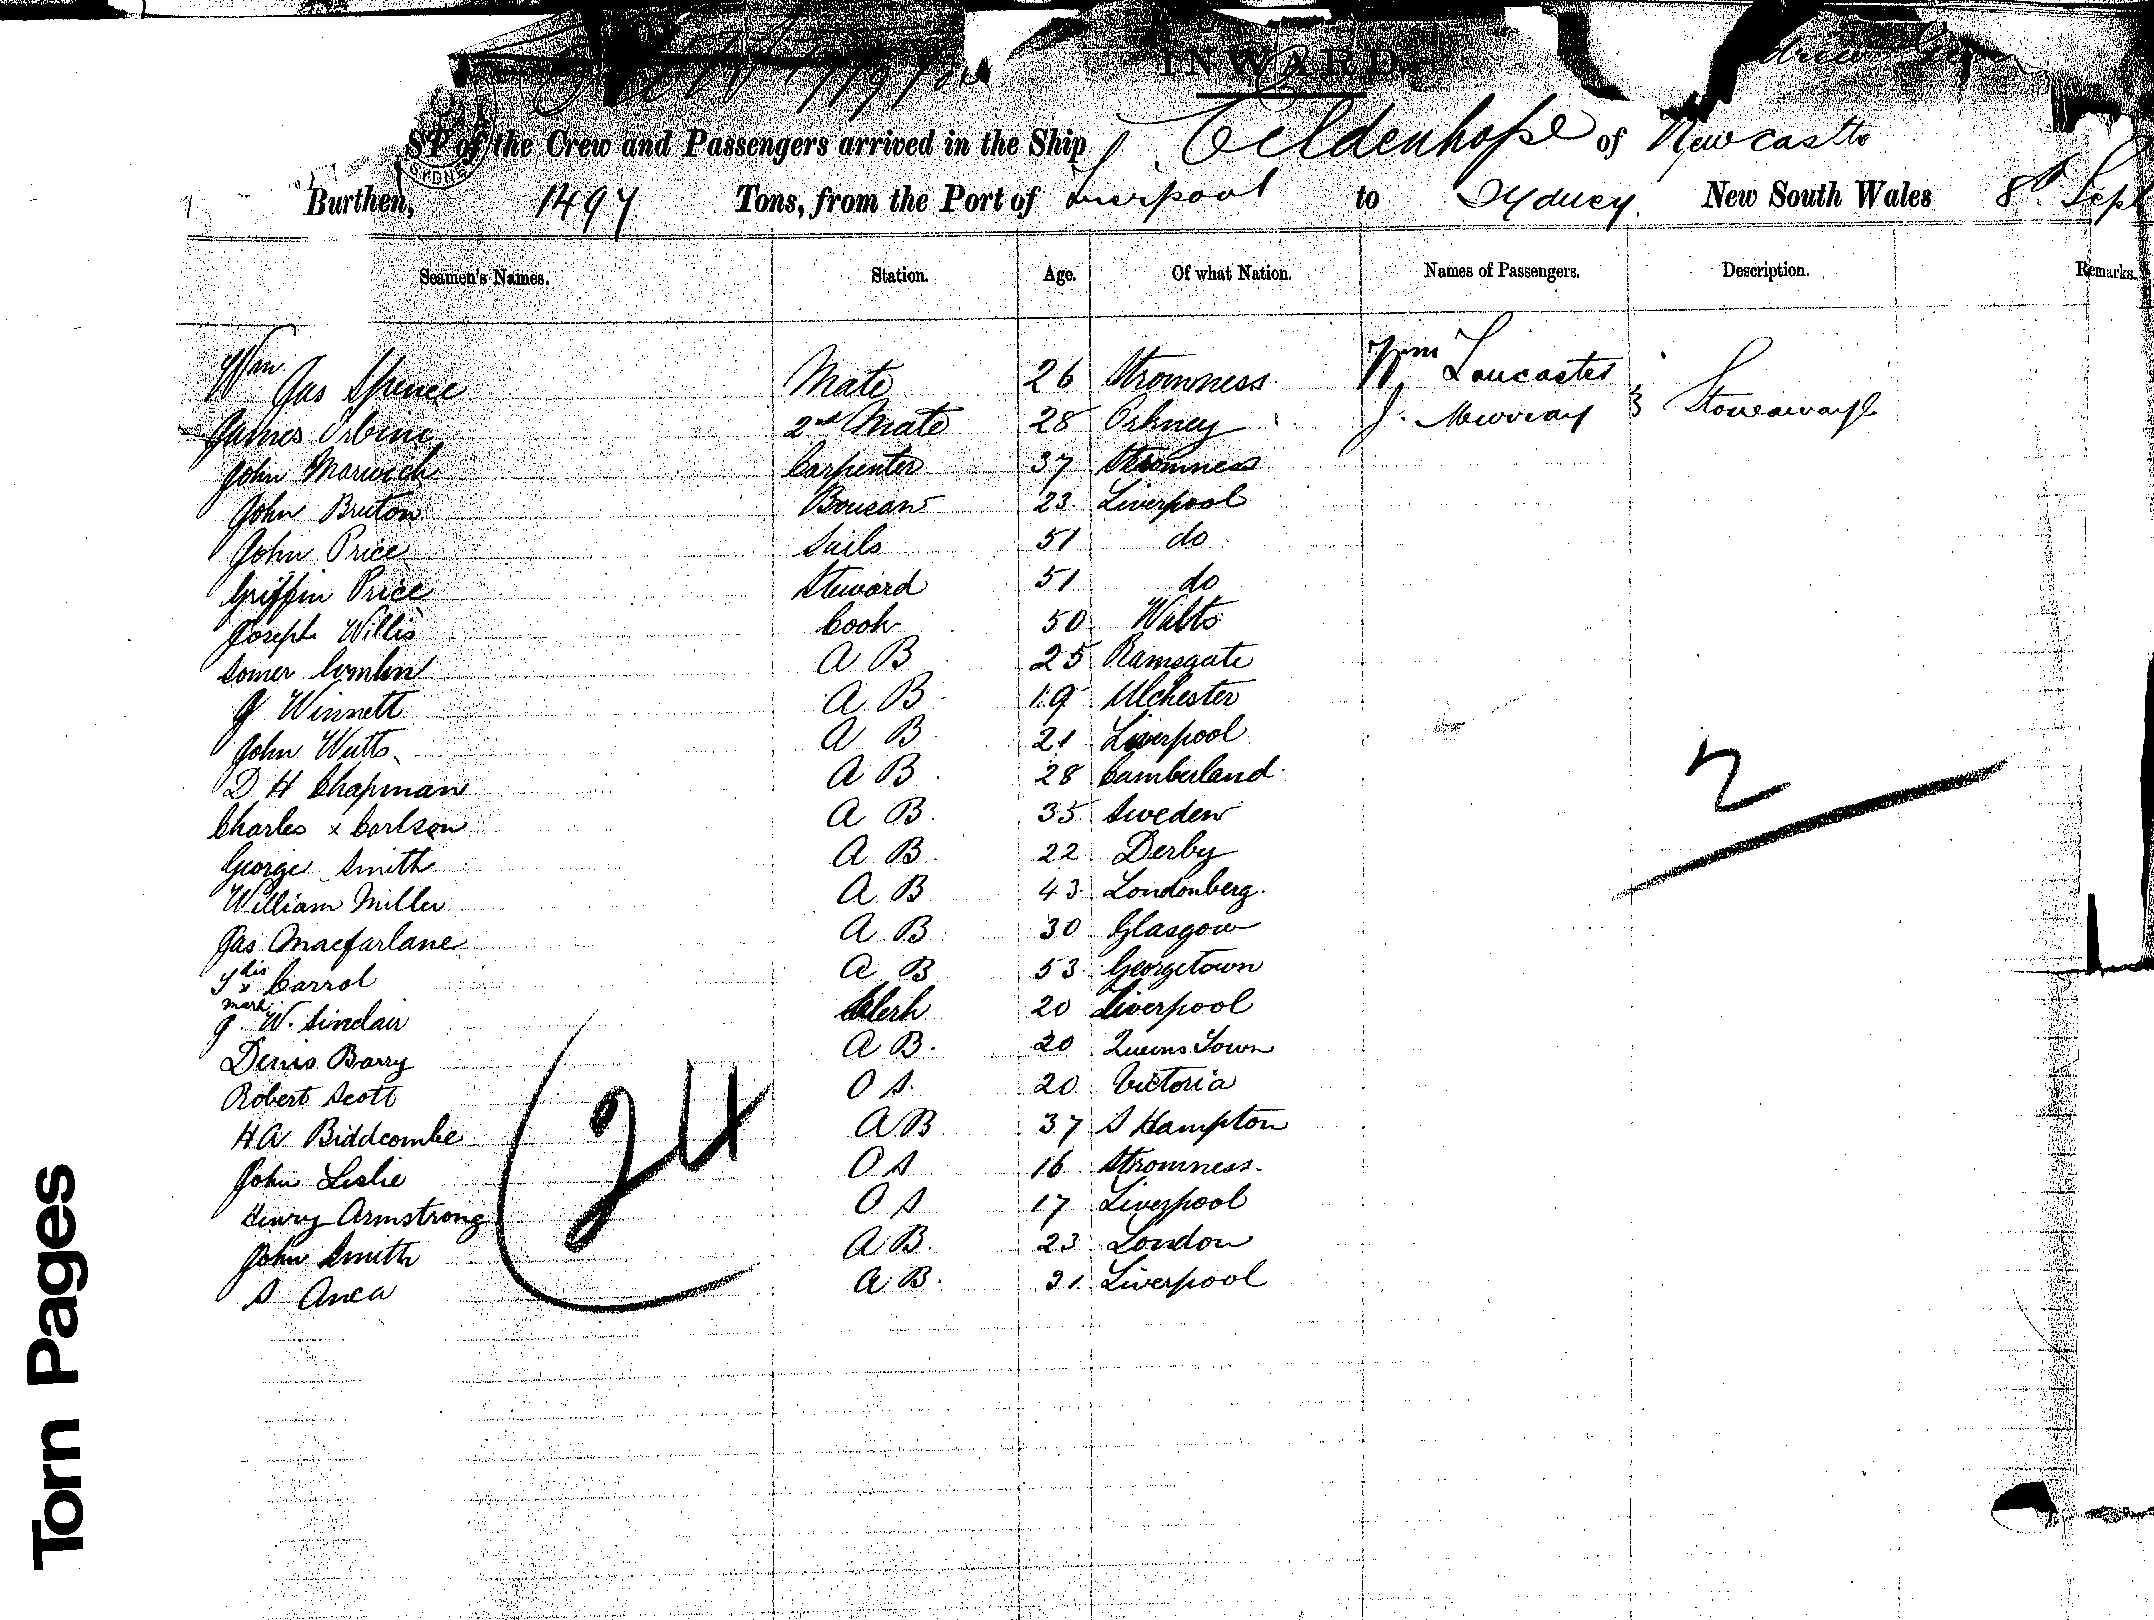 INWARD.
ST of the Crew and Passengers arrived in the Ship Eildenhope of Newcastle
Burthen, 1497 Tons, from the Port of Liverpool to Sydney. New South Wales 8th Sept
Seamen's Names. Station. Age. Of what Nation. Names of Passengers. Description. Remarks.
Wm Jas Spence Mate 26 Stromness Wm Lancaster
James Irbine 2nd Mate 28 Orkney J. Murray } Stoneaways
John Marwich Carpenter 37 Stromness
John Bruton Boucan 23 Liverpool
John Price Sails 51 do
Griffin Price Steward 51 do
Joseph Willis Cook 50 Walts
Somer A B 25 Ramsgate
G Winnett A B 19 Ulchester
John Watts A B 21 Liverpool
D H Chapman A B 28 Camberland
Charles x Carlson A B 35 Sweden
George Smith A B 22 Derby
William Miller A B 43 Londonberg.
Jas Macfarlane A B 30 Glasgow
his x Carrol A B 53 Georgetown
mark
G. W. Sinclair Clerk 20 Liverpool
Denis Barry A B. 20 Queens Town
Robert Scott O S. 20 Victoria
H A Biddcombe A B 37 S Hampton
John Leslie O S 16 Stromness.
Henry Armstrong O S 17 Liverpool
John Smith A B. 23 London
S Anca A B. 21 Liverpool
24
2
Torn Pages